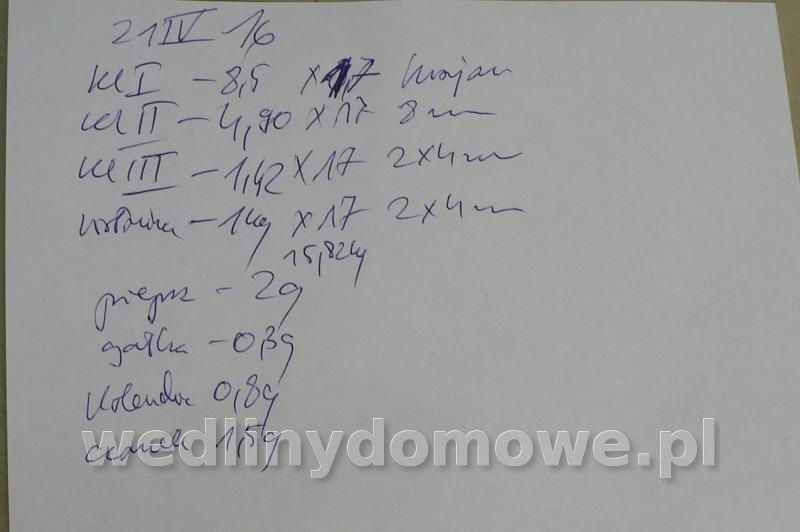 21 IV 16
kl I - 8,5 x 17 krajan
kl II - 4,90 x 17 8m
kl III - 1,42 x 17 2x4m
wołowina - 1kg x 17 2x4m
15,82kg
pieprz - 2g
gałka - 0,3g
Kolendra 0,8g
czosnek 1,5g
wedlinydomowe.pl